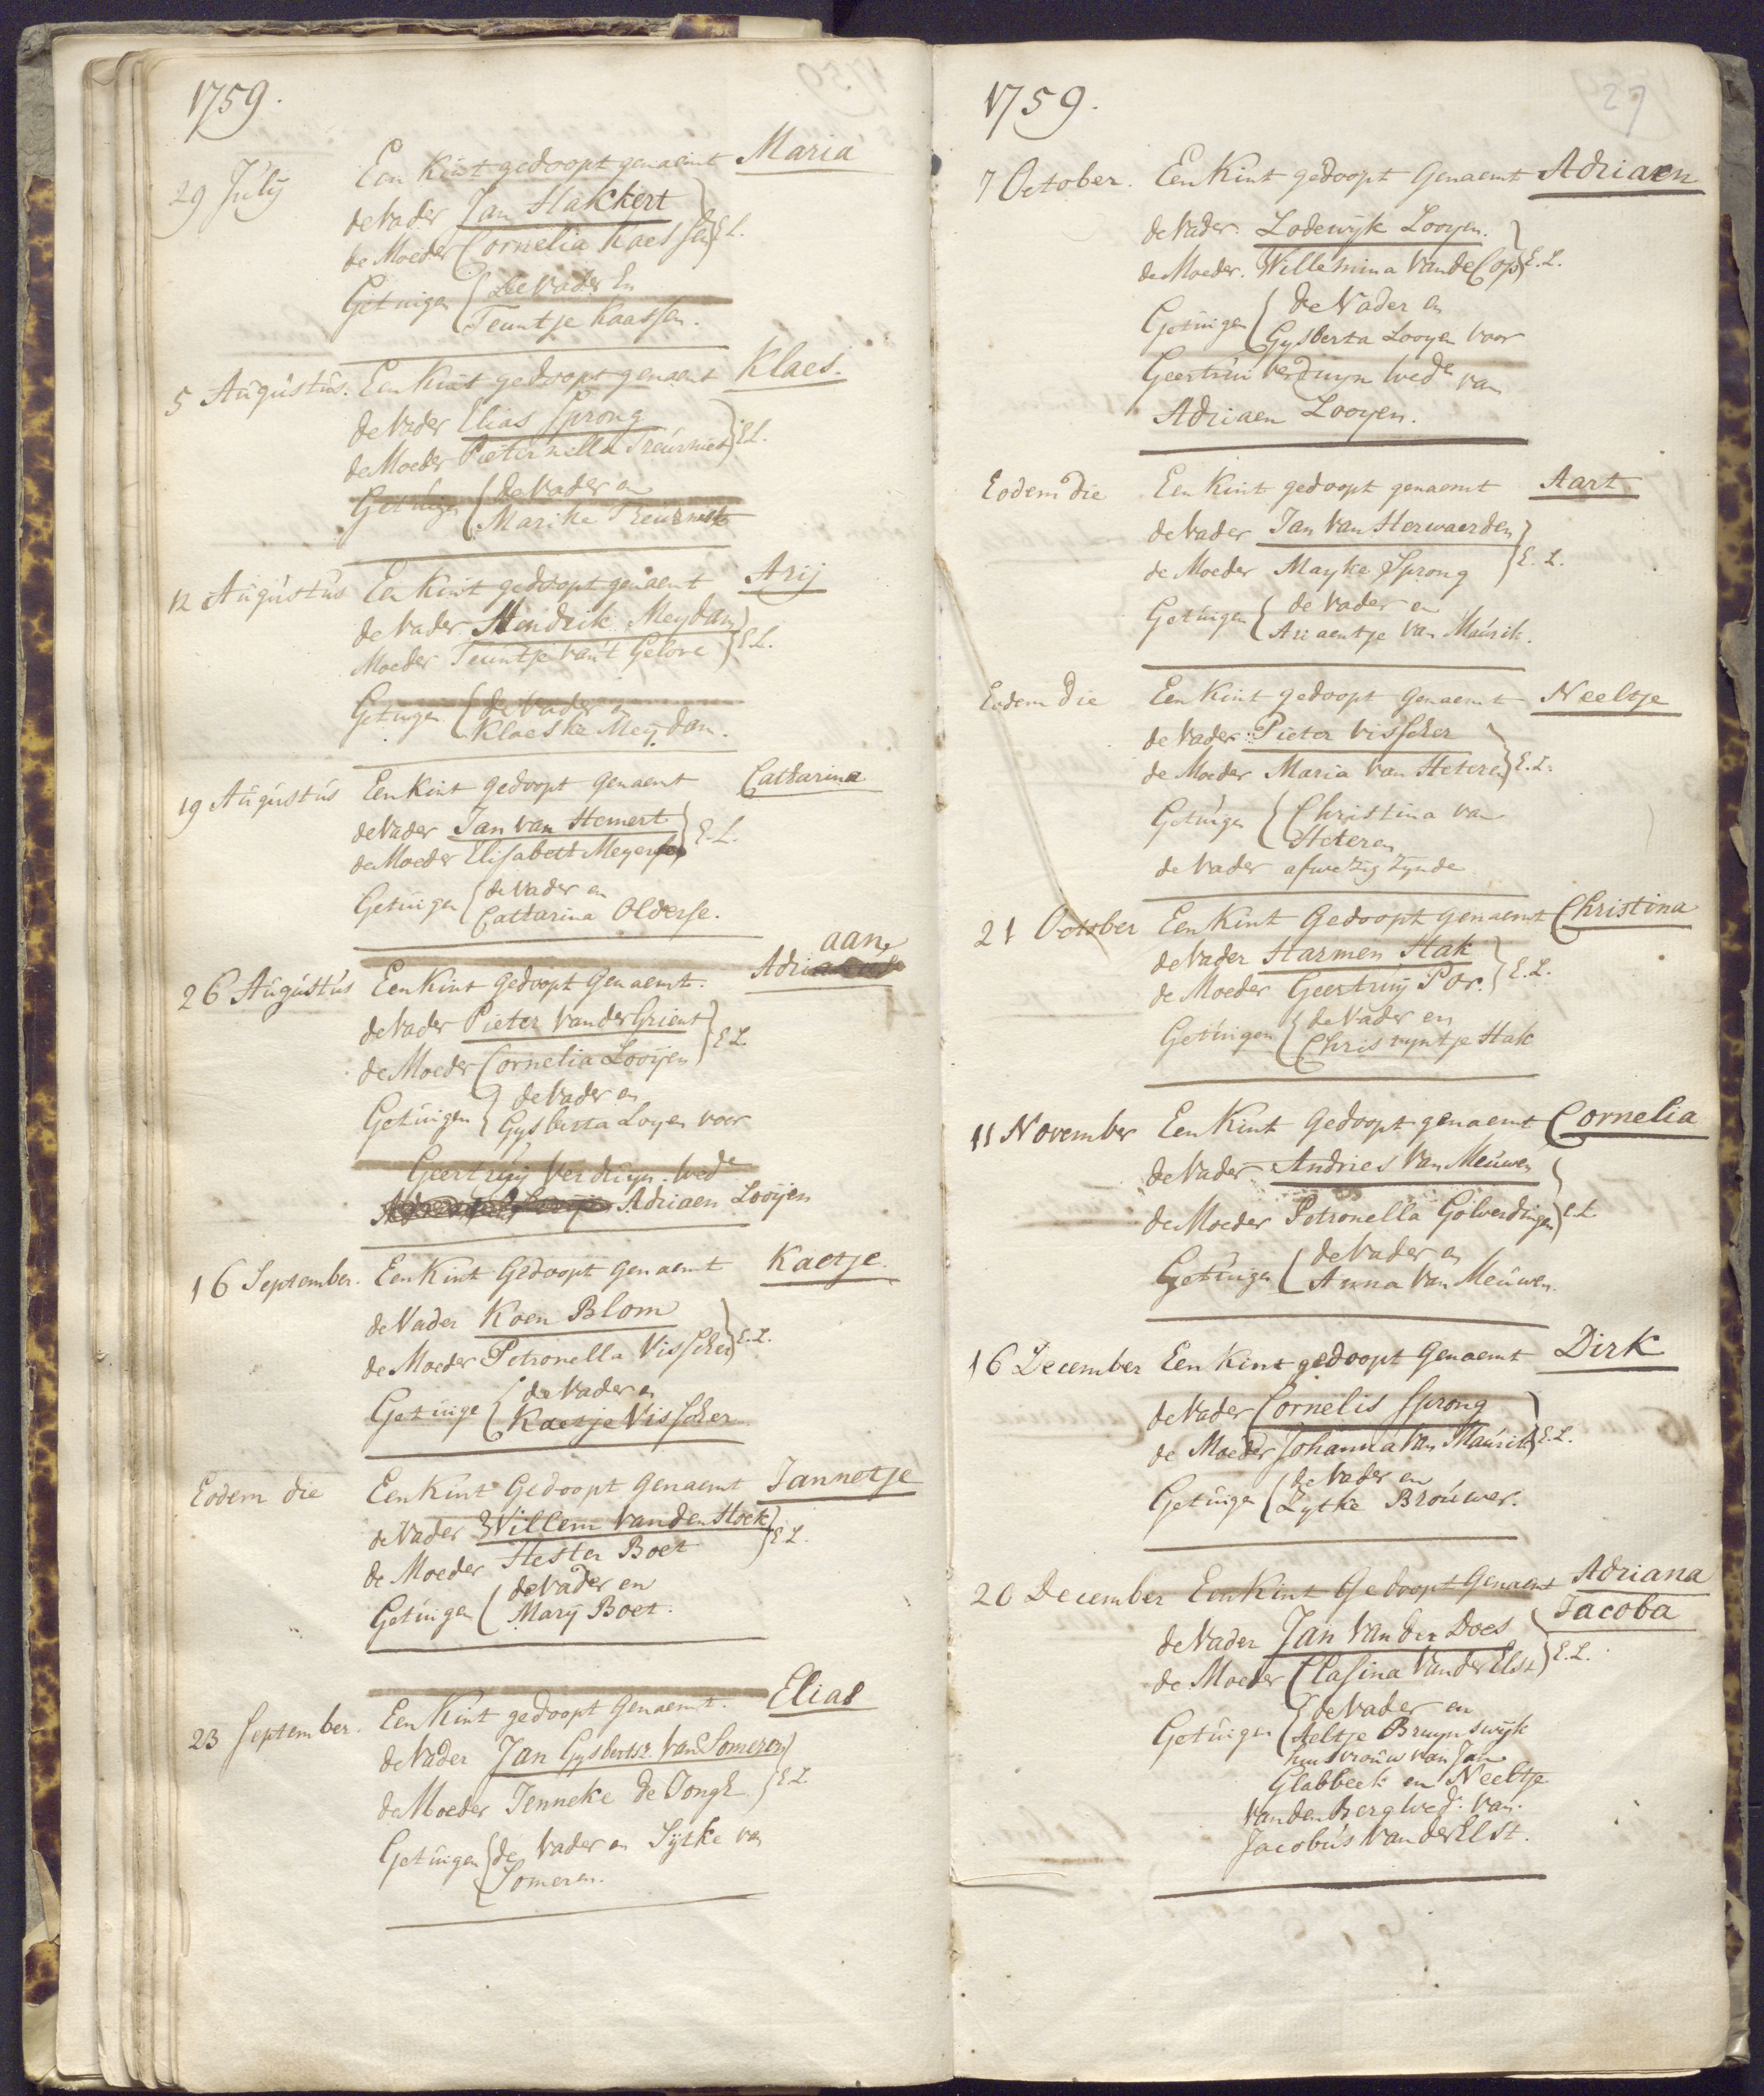 1759.
29 Julij Een Kint gedoopt genaemt Maria
de Vader Jan Hakkert
de Moeder Cornelia Kaessen } E L.
Getuigen { De Vader En
Teuntje Kaassen.
5 Augustus. Een Kint gedoopt genaemt Klaes.
de Vader Elias Sprong
de Moeder Pieternella Treurniet } E L.
Getuigen { de Vader en
Marike Treurniet
12 Augustus Een Kint gedoopt genaemt Arij
de Vader Hendrik Meydam
Moeder Teuntje van't Gelove } E L.
Getuigen { de Vader en
Klaeske Meydam.
19 Augustus Een Kint gedoopt genaemt Catharina
de Vader Jan van Hemert
de Moeder Elisabett Meyersse } E. L.
Getuigen { de Vader en
Cattarina Olderse.
aan,
26 Augustus Een Kint gedoopt genaemt. Adri
de Vader Pieter van der Grient
de Moeder Cornelia Looijen } E L.
Getuigen { de Vader en
Gysberta Loyen voor
Geertruij Verduyn. wede
Adriaen Looijen
16 September. Een Kint Gedoopt genaemt Kaetje.
de Vader Koen Blom
de Moeder Petronella Visscher } E. L.
Getuige { de Vader en
Kaetje Visscher
Eodem die Een Kint Gedoopt Genaemt Jannetje
de Vader Willem van den Hoek
de Moeder Hester Boet } E L.
Getuigen ( de Vader en
Marij Boet.
23 September. Een Kint gedoopt Genaemt. Elias
de Vader Jan Gysbertsz. van Someren
de Moeder Jenneke de Jongh } E L
Getuigen { de Vader en Sijtke van
Someren.
1759.
27
7 October. Een Kint gedoopt Genaemt Adriaen
de Vader. Lodewijk Looyen.
de Moeder. Willemina van de Cop } E. L.
Getuigen { de Vader en
Gysberta Looyen voor
Geertrui Verduyn wede van
Adriaen Looyen.
Eodem die Een Kint gedoopt genaemt Aart
de Vader Jan van Herwaerden
de Moeder Mayke Sprong } E. L.
Getuigen { de Vader en
Ariaentje van Maurik.
Eodem die Een Kint gedoopt Genaemt Neeltje
de Vader: Pieter Visscher
de Moeder Maria van Heteren } E. L.
Getuigen { Christina van
Heteren
de Vader afwezig zynde
21 October Een Kint Gedoopt genaemt Christina
de Vader Harmen Hak
de Moeder Geertruij Por. } E. L.
Getuigen { de Vader en
Chris nyntje Hak
11 November Een Kint Gedoopt genaemt Cornelia
de Vader Andries van Meuwen
de Moeder Petronella Golverdingen } E L
Getuigen { de Vader en
Anna van Meuwen.
16 December Een Kint gedoopt Genaemt Dirk
de Vader Cornelis Sprong
de Moeder Johanna van Maurik } E. L.
Getuigen ( de Vader en
Zytke Brouwer.
26 December Een Kint Gedoopt Genaemt Adriana
Jacoba
de Vader Jan van der Does
de Moeder Clasina van der Elst } E. L.
Getuigen { de Vader en
Aeltje Bruynswijk
huisvrouw van Jan
Glabbeek en Neeltje
van den Berg wed. van.
Jacobus van der Elst.